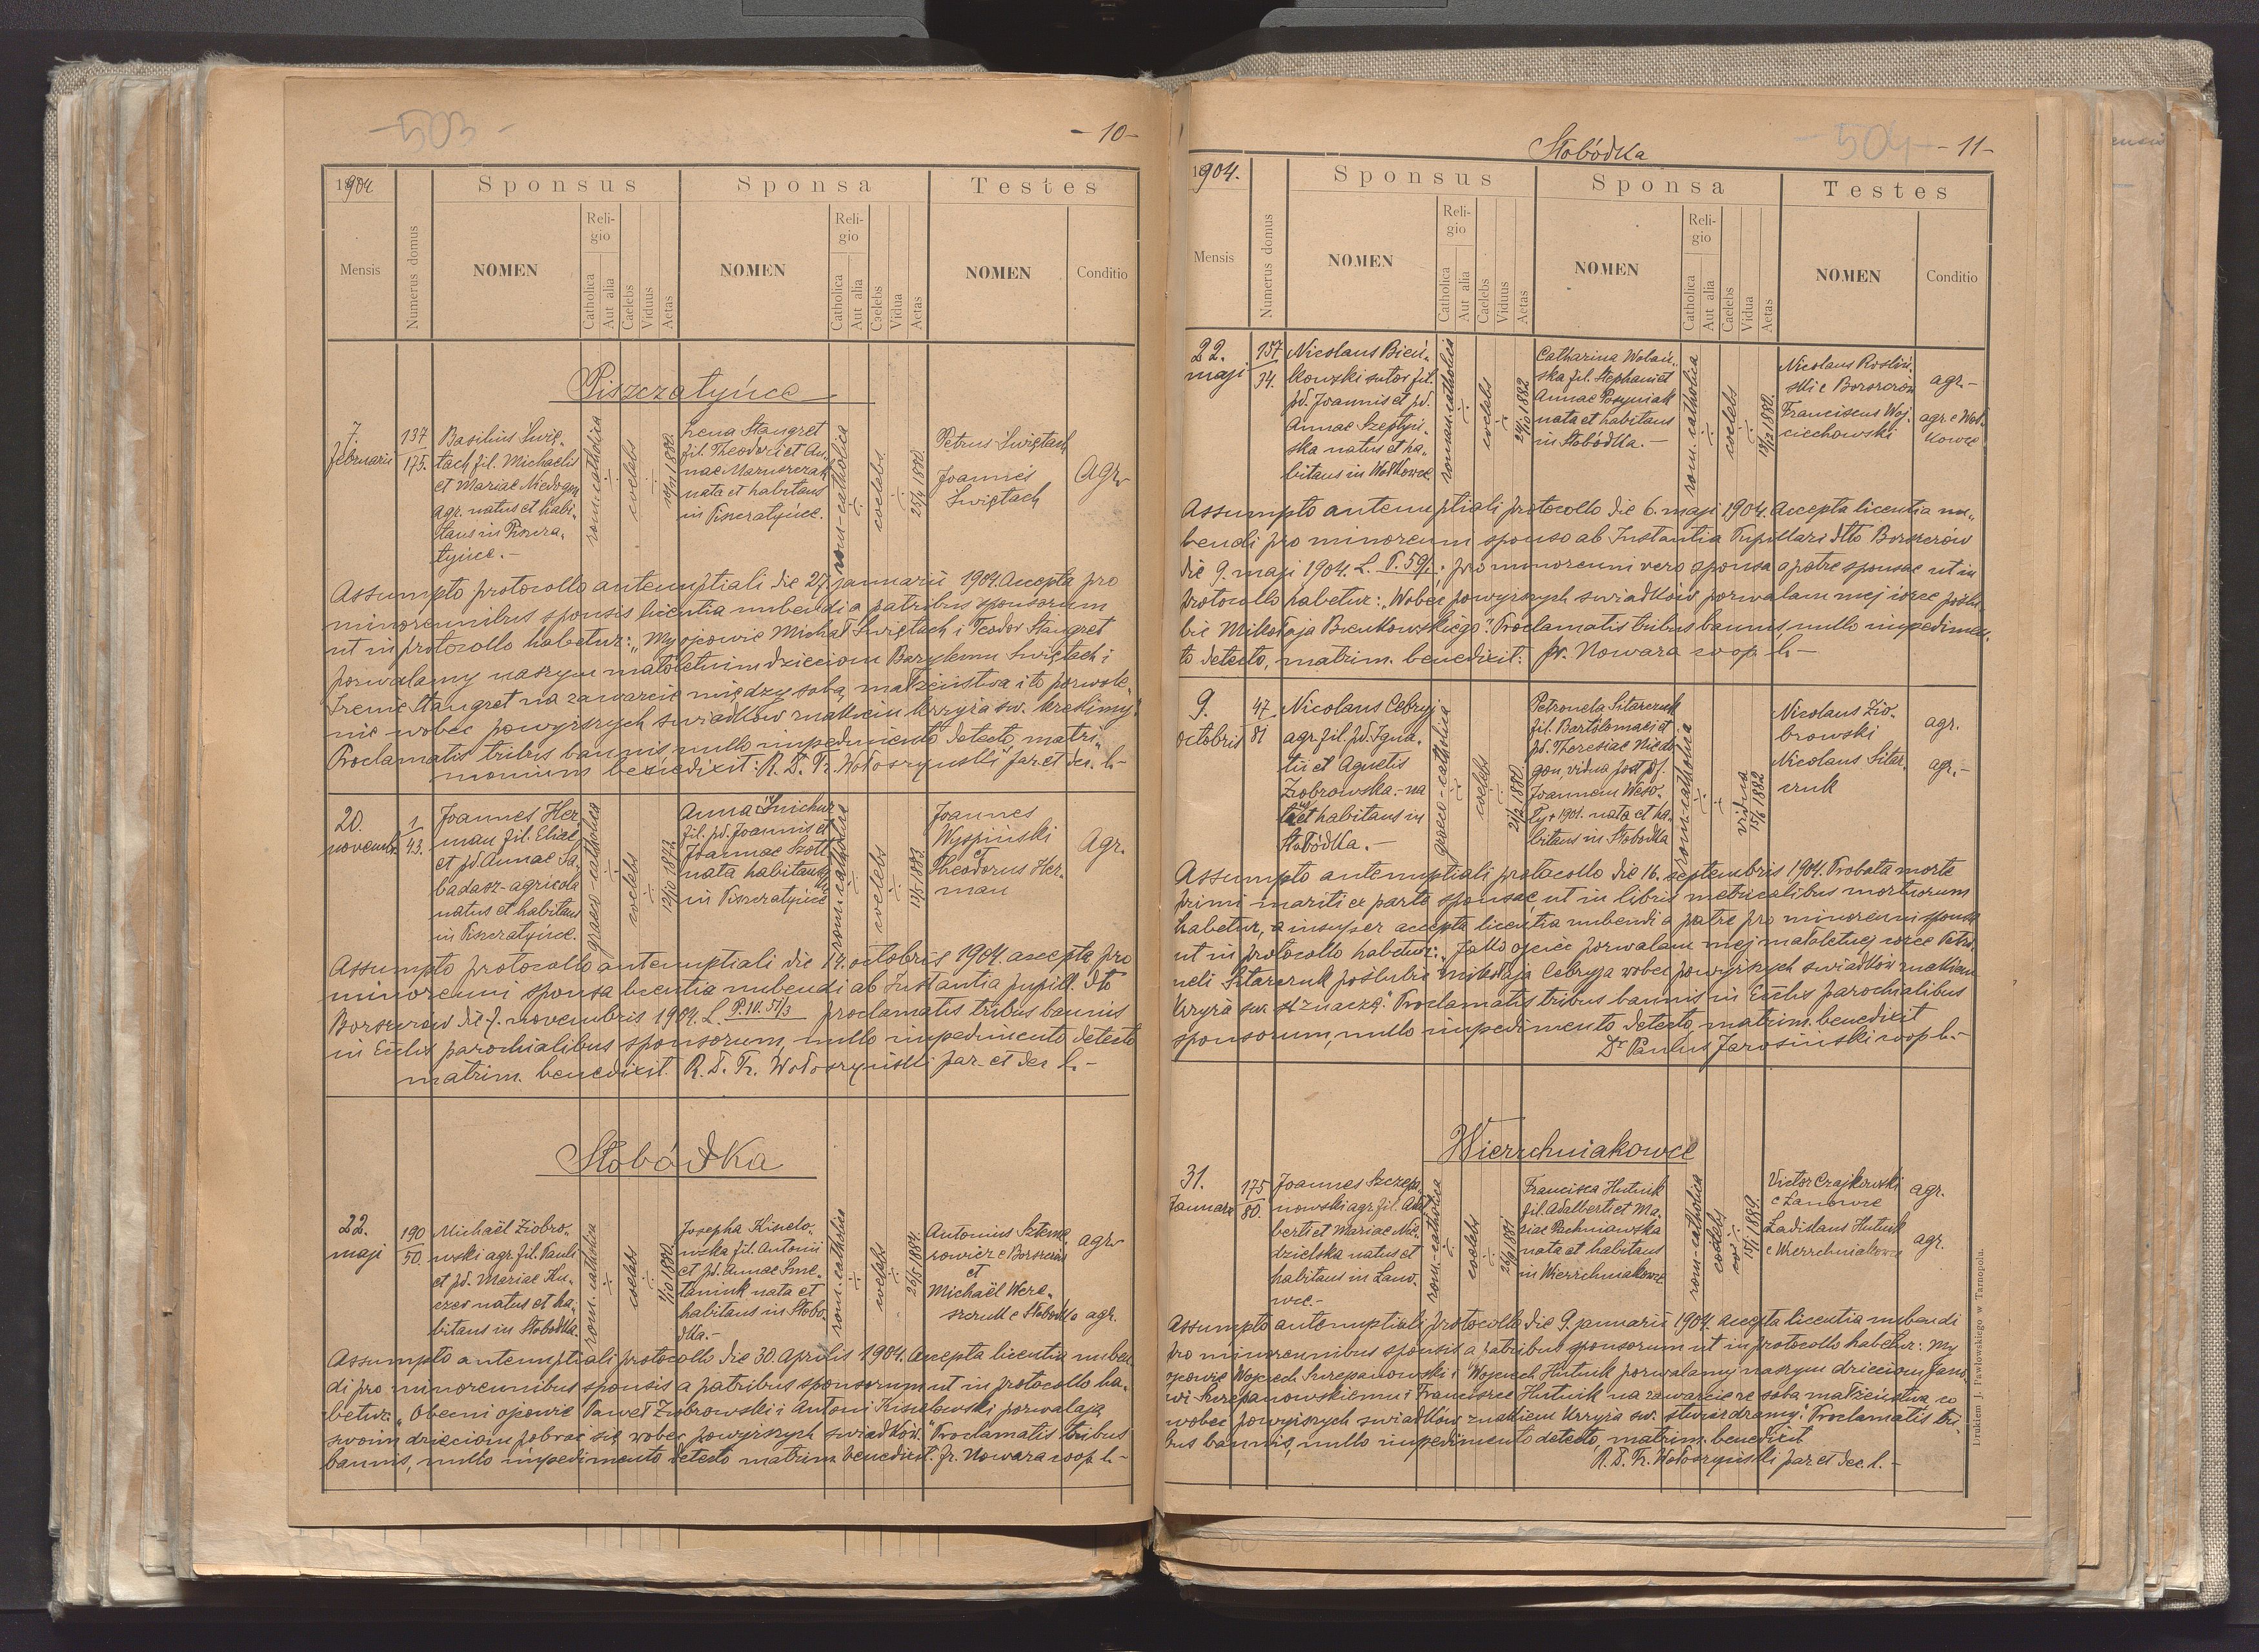 -503-
-10-
1904
Sponsus
Sponsa
Testes
Mensis
Numerus domus
NOMEN
Religio
Catholica
Aut alia
Caelebs
Viduus
Aetas
NOMEN
Religio
Catholica
Aut alia
Caelebs
Vidua
Aetas
NOMEN
Conditio
Piszczatyńce
7.
februarii
137
175.
Basilius Świę-
tach fil. Michaelis
et Mariae Niedogon
agr. natus et habi-
tans in Piszcza-
tyńce.-
rom-catholica
coelebs
10/11 1880
Irena Stangret
fil. Theodori et An-
nae
nata et habitans
in Piszczatyńce.
rom-catholica
coelebs
25/4 1880.
Petrus Świętach
Joannes
Świętach
Agr.
Assumpto protocollo antenuptiali die 27 januarii 1904. Accepta pro
minorennibus sponsis licentia nubendi a patribus sponsorum
ut in protocollo habetur: "My ojcowie Michał Świętach i Teodor Stangret
pozwalamy naszym małoletnim dzieciom Bazylemu Świętach i
Irenie Stangret na zawarcie między sobą małżeństwa i to pozwole-
nie wobec powyższych świadków znakiem krzyża św. kreślimy."
Proclamatis tribus bannis nullo impedimento detecto matri-
monium benedixit: R. D. Tr. Wołoszyński par et dec. l.-
20.
novembr.
1.
43.
Joannes Her-
man fil. Eliae
et pd. Annae Sa-
badasz - agricola
natus et habitans
in Piszczatyńce.
graeco-catholica
coelebs
12/10 1873.
Anna Śnichur
fil. pd. Joannis et
Joannae Szott
nata habitans
in Piszczatyńce
rom.-catholica
coelebs
13/5 1883.
Joannes
Wyspiński
et
Theodorus Her-
man
Agr.
Assumpto protocollo antenuptiali die 14. octobris 1904. accepta pro
minorenni sponsa licentia nubendi ab Instantia pupill. dto
Borszczów die 7. novembris 1904. L. P.IV.51/3 proclamatis tribus bannis
in Ecclis parochialibus sponsorum, nullo impedimento detecto
matrim. benedixit. R. D. Tr. Wołoszyński par. et dec l.-
Słobódka
22.
maji
190
50.
Michaël Ziobro-
wski agr. fil. Pauli
et pd. Mariae Ku-
czer natus et ha-
bitans in Słobódka.
rom.-catholica
coelebs
1/10 1880.
Josepha Kisielo-
wska fil. Antonii
et pd. Annae Sme-
taniuk nata et
habitans in Słobó-
dka.-
rom-catholica
coelebs
26/5 1884.
Antonius
rowicz e Borszczów
et
Michaël Were-
szczuk e Słobódka agr.
agr.
Assumpto antenuptiali protocollo die 30. Aprilis 1904. Accepta licentia nuben-
di pro minorennibus sponsis a patribus sponsorum ut in protocollo ha-
betur: "Obecni ojcowie Paweł Ziobrowski i Antoni Kisielowski pozwalają
swoim dzieciom pobrać się wobec powyższych świadków." Proclamatis tribus
bannis, nullo impedimento detecto matrim. benedixit. fr. Nowara coop. l.-
Słobódka
-504-
-11-
1904.
Sponsus
Sponsa
Testes
Mensis
Numerus domus
NOMEN
Religio
Catholica
Aut alia
Caelebs
Viduus
Aetas
NOMEN
Religio
Catholica
Aut alia
Caelebs
Vidua
Aetas
NOMEN
Conditio
22.
maji
157
34.
Nicolaus Bień-
kowski sutor fil.
pd. Joannis et pd.
Annae Szeptyń-
ska natus et ha-
bitans in Wołkowce.
roman.-catholica
coelebs
24/10 1882
Catharina Wolań-
ska fil. Stephani et
Annae Posyniak
nata et habitans
in Słobódka.-
rom.-catholica
coelebs
18/12 1880.
Nicolaus Rosliń-
ski e Borszczów
Franciscus Woj-
ciechowski
agr.-
agr. e Woł-
kowce
Assumpto antenuptiali protocollo die 6. maji 1904. Accepta licentia nu-
bendi pro minorenni sponso ab Instantia Pupillari dtto Borszczów
die 9. maji 1904. L. P. 59/. pro minorenni vero sponsa a patre sponsae ut in
protocollo habetur: "Wobec powyższych świadków pozwalam mej córce poślu-
bić Mikołaja Bieńkowskiego." Proclamatis tribus bannis, nullo impedimen-
to detecto, matrim. benedixit: fr. Nowara coop. l.-
9.
octobris
47
81
Nicolaus Cebryj
agr. fil. pd. Igna-
tii et Agnetis
Ziobrowska.- na-
tus et habitans in
Słobódka.-
graeco-catholica
coelebs
21/2 1880.
Petronela Sitarczuk
fil. Bartolomaei et
pd. Theresiae Niedo-
gon, vidua post pd.
Joannem Weso-
ły + 1901. nata et ha-
bitans in Słobódka
rom-catholica
vidua
15/6 1882
Nicolaus Zio-
browski
Nicolaus Sitar-
czuk
agr.
agr.-
Assumpto antenuptiali protocollo die 16. septembris 1904. Probata morte
primi mariti ex parte sponsae, ut in libris metricalibus mortuorum
habetur, a insuper accepta licentia nubendi a patre pro minorenni sponsa
ut in protocollo habetur: "Jako ojciec pozwalam mej małoletniej córce Petro-
neli Sitarczuk poślubić Mikołaja Cebryja wobec powyższych świadków znakiem
krzyża św. st znaczę." Proclamatis tribus bannis in Ecclis parochialibus
sponsorum, nullo impedimento detecto, matrim. benedixit
Dr Paulus Jarosiński coop l.-
Wierzchniakowce
31.
Januarii
175
80.
Joannes Szczepa-
nowski agr. fil. Adal-
berti et Mariae Nie-
dzielska natus et
habitans in Łano-
wce.-
rom-catholica
coelebs
26/9 1881
Francisca Hutnik
fil. Adalberti et Ma-
riae Pachniawska
nata et habitans
in Wierzchniakowce
rom-catholica
coelebs
15/1 1889.
Victor Czajkowski
e Łanowce
Ladislaus Hutnik
e Wierzchniakowce
agr.
agr.
Assumpto antenuptiali protocollo die 9. januarii 1904. accepta licentia nubendi
pro minorennibus sponsis a patribus sponsorum ut in protocollo habetur: My
ojcowie Wojciech Szczepanowski i Wojciech Hutnik pozwalamy naszym dzieciom Jano-
wi Szczepanowskiemu i Franciszce Hutnik na zawarcie ze sobą małżeństwa, co
wobec powyższych świadków znakiem krzyża św. stwierdzamy." Proclamatis tri-
bus bannis, nullo impedimento detecto matrim. benedixit
R. D. Tr. Wołoszyński par et dec. l.-
Drukiem J. Pawłowskiego w Tarnopolu.